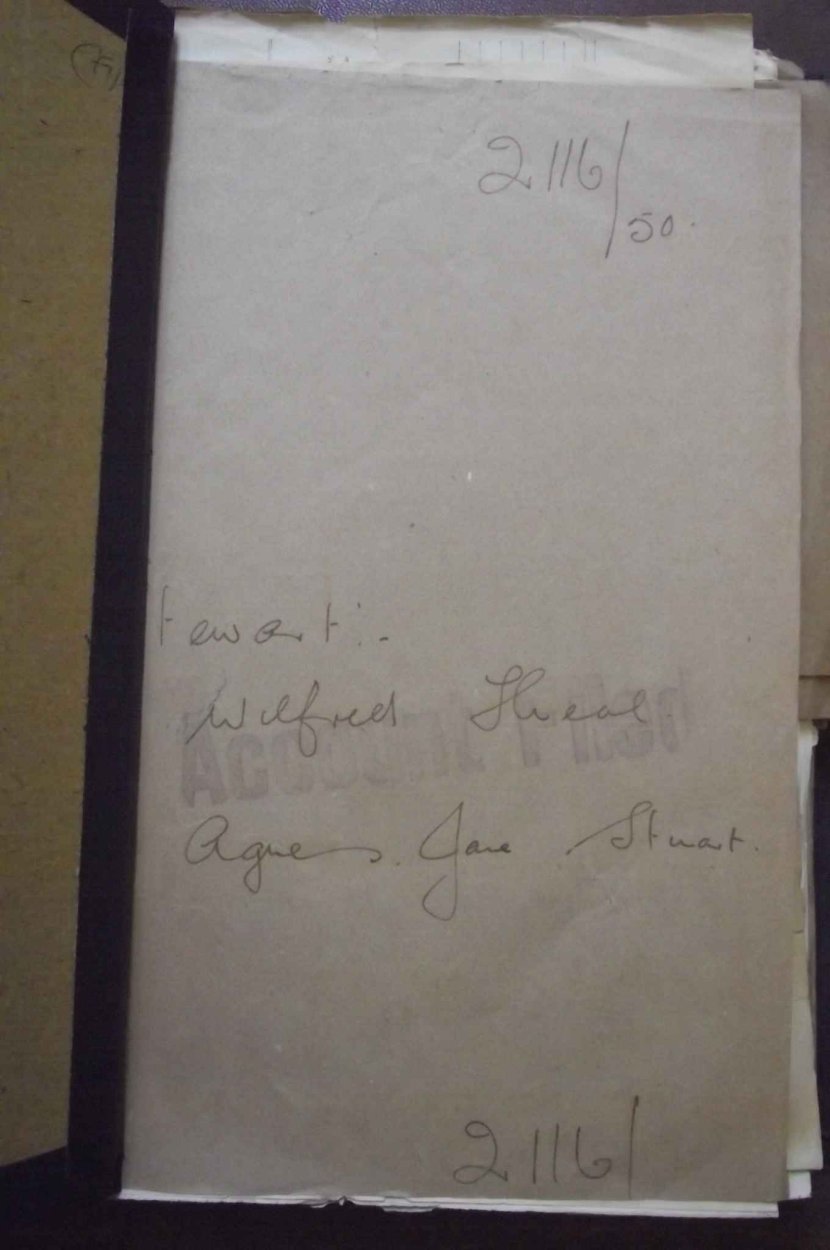 2116/50.
tewart:-
Wilfred Theal.
Account Filed
Agnes Jane Stuart.
2116/